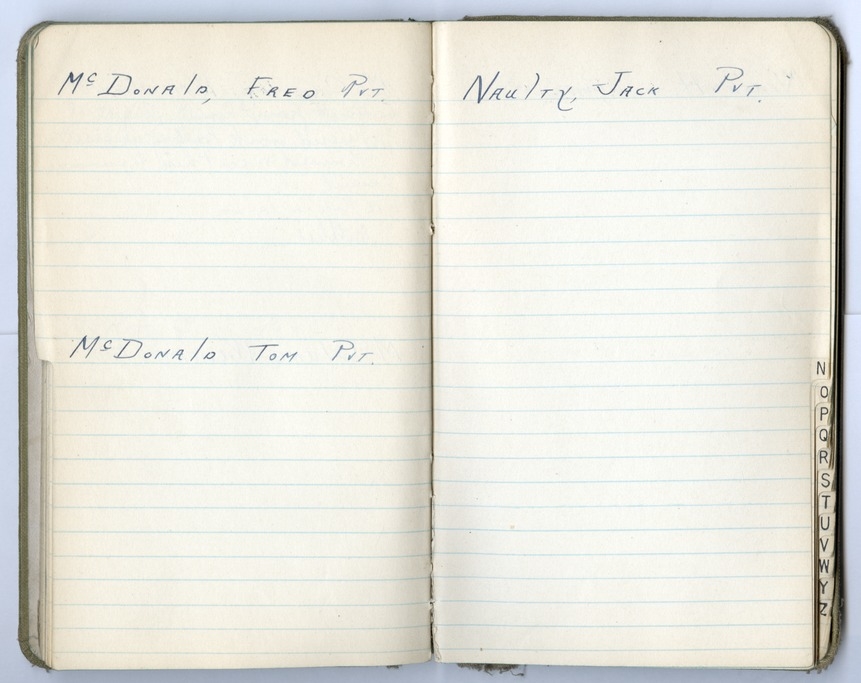 McDonald, Fred Pvt.
McDonald Tom Pvt.
Naulty, Jack Pvt.
N
O
P
Q
R
S
T
U
V
W
Y
Z